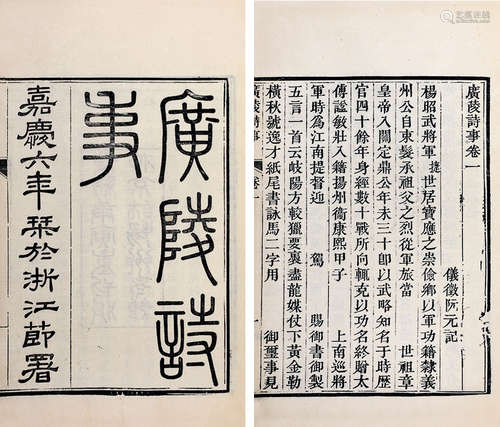 廣陵詩
事
嘉慶六年栞於浙江節署
廣陵詩事卷一
儀徵阮元記
楊昭武將軍捷世居寶應之崇儉鄉以軍功籍隸義
州公自束髮承祖父之烈從軍旅當 世祖章
皇帝入關定鼎公年未三十即以武略知名于時歷
官四十餘年身經數十戰所向輒克以功名終贈太
傅諡敏壯入籍揚州衛康熙甲子 上南巡將
軍時爲江南提督迎 駕 賜御書御製
五言一首云岐陽方較獵要裏盡龍媒仗下黃金勒
橫秋號逸才紙尾書詠馬二字用 御璽事見
廣陵詩事 卷一